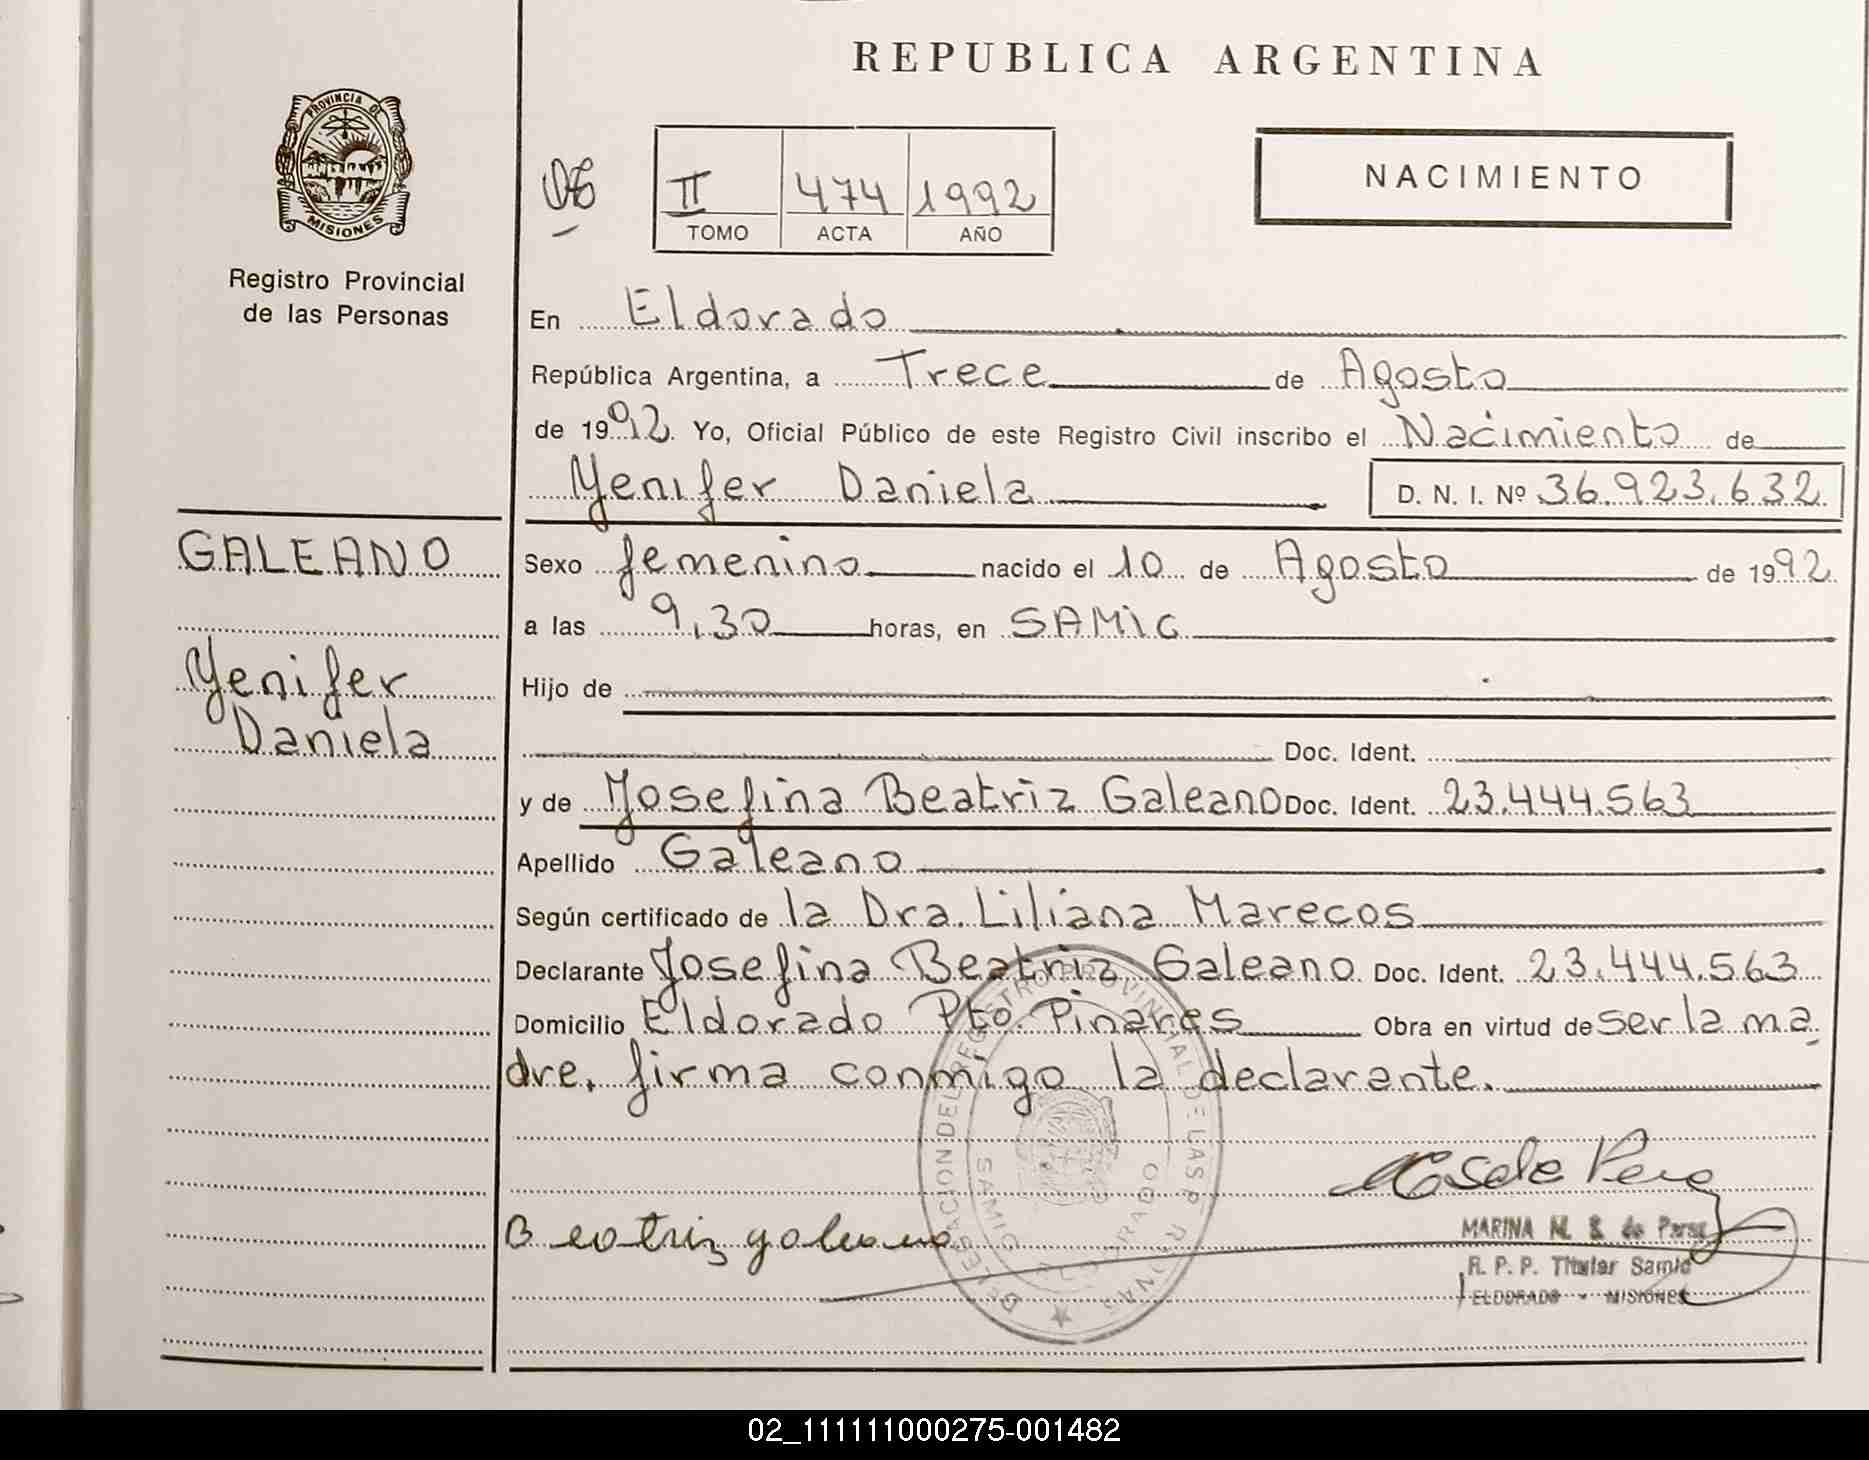 REPUBLICA ARGENTINA
PROVINCIA DE
MISIONES
Registro Provincial
de las Personas
II 474 1992
TOMO ACTA AÑO
NACIMIENTO
En Eldorado
República Argentina, a Trece de Agosto
de 1992. Yo, Oficial Público de este Registro Civil inscribo el Nacimiento de
Yenifer Daniela D. N. I. Nº 36.923.632
GALEANO
Yenifer
Daniela
Sexo femenino nacido el 10 de Agosto de 1992
a las 9,30 horas, en SAMIC
Hijo de
Doc. Ident.
y de Yosefina Beatriz Galeano Doc. Ident. 23.444.563
Apellido Galeano
Según certificado de la Dra. Liliana Marecos
Declarante Yosefina Beatriz Galeano Doc. Ident. 23.444.563
Domicilio Eldorado Pto. Pinares Obra en virtud de ser la ma
dre, firma conmigo la declarante.
DELEGACION DEL REGISTRO PROVINCIAL DE LAS P
SAMIC
Beatriz galeano
MARINA M. S. de
R. P. P. Titular Samic
ELDORADO - MISIONES
02_111111000275-001482